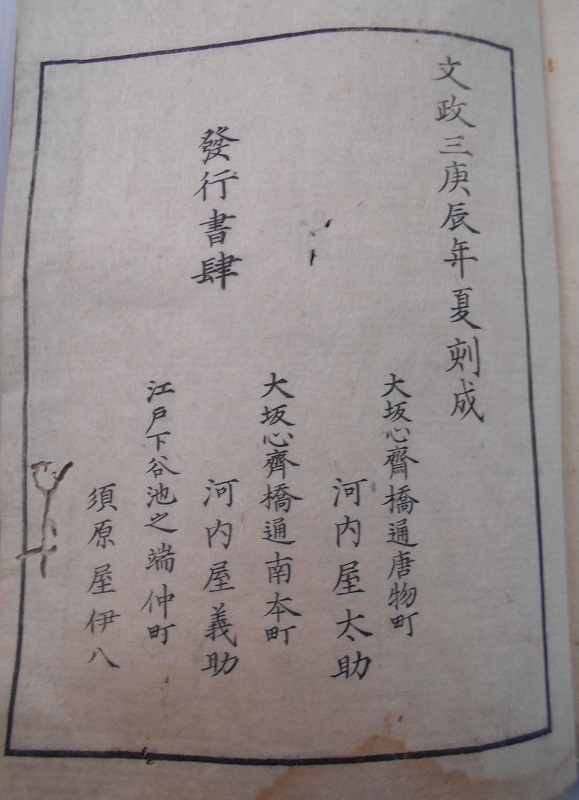 文政三庚辰年夏刻成
大坂心齋橋通唐物町
河内屋太助
發行書肆
大坂心齊橋通南本町
河内屋義助
江戸下谷池之端仲町
須原屋伊八